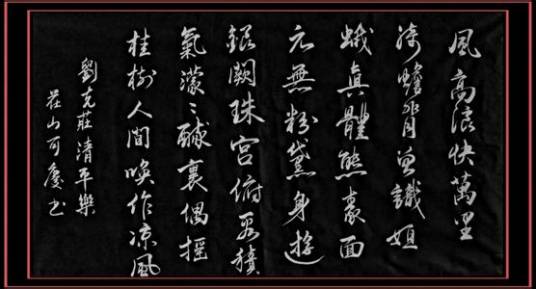 風高浪快萬里
騎蟾背曾識姮
娥真體態素面
元無粉黛身遊
銀闕珠宮俯看積
氣濛〻醉裏偶摇
桂樹人間喚作凉風
劉克莊清平樂
山可慶书